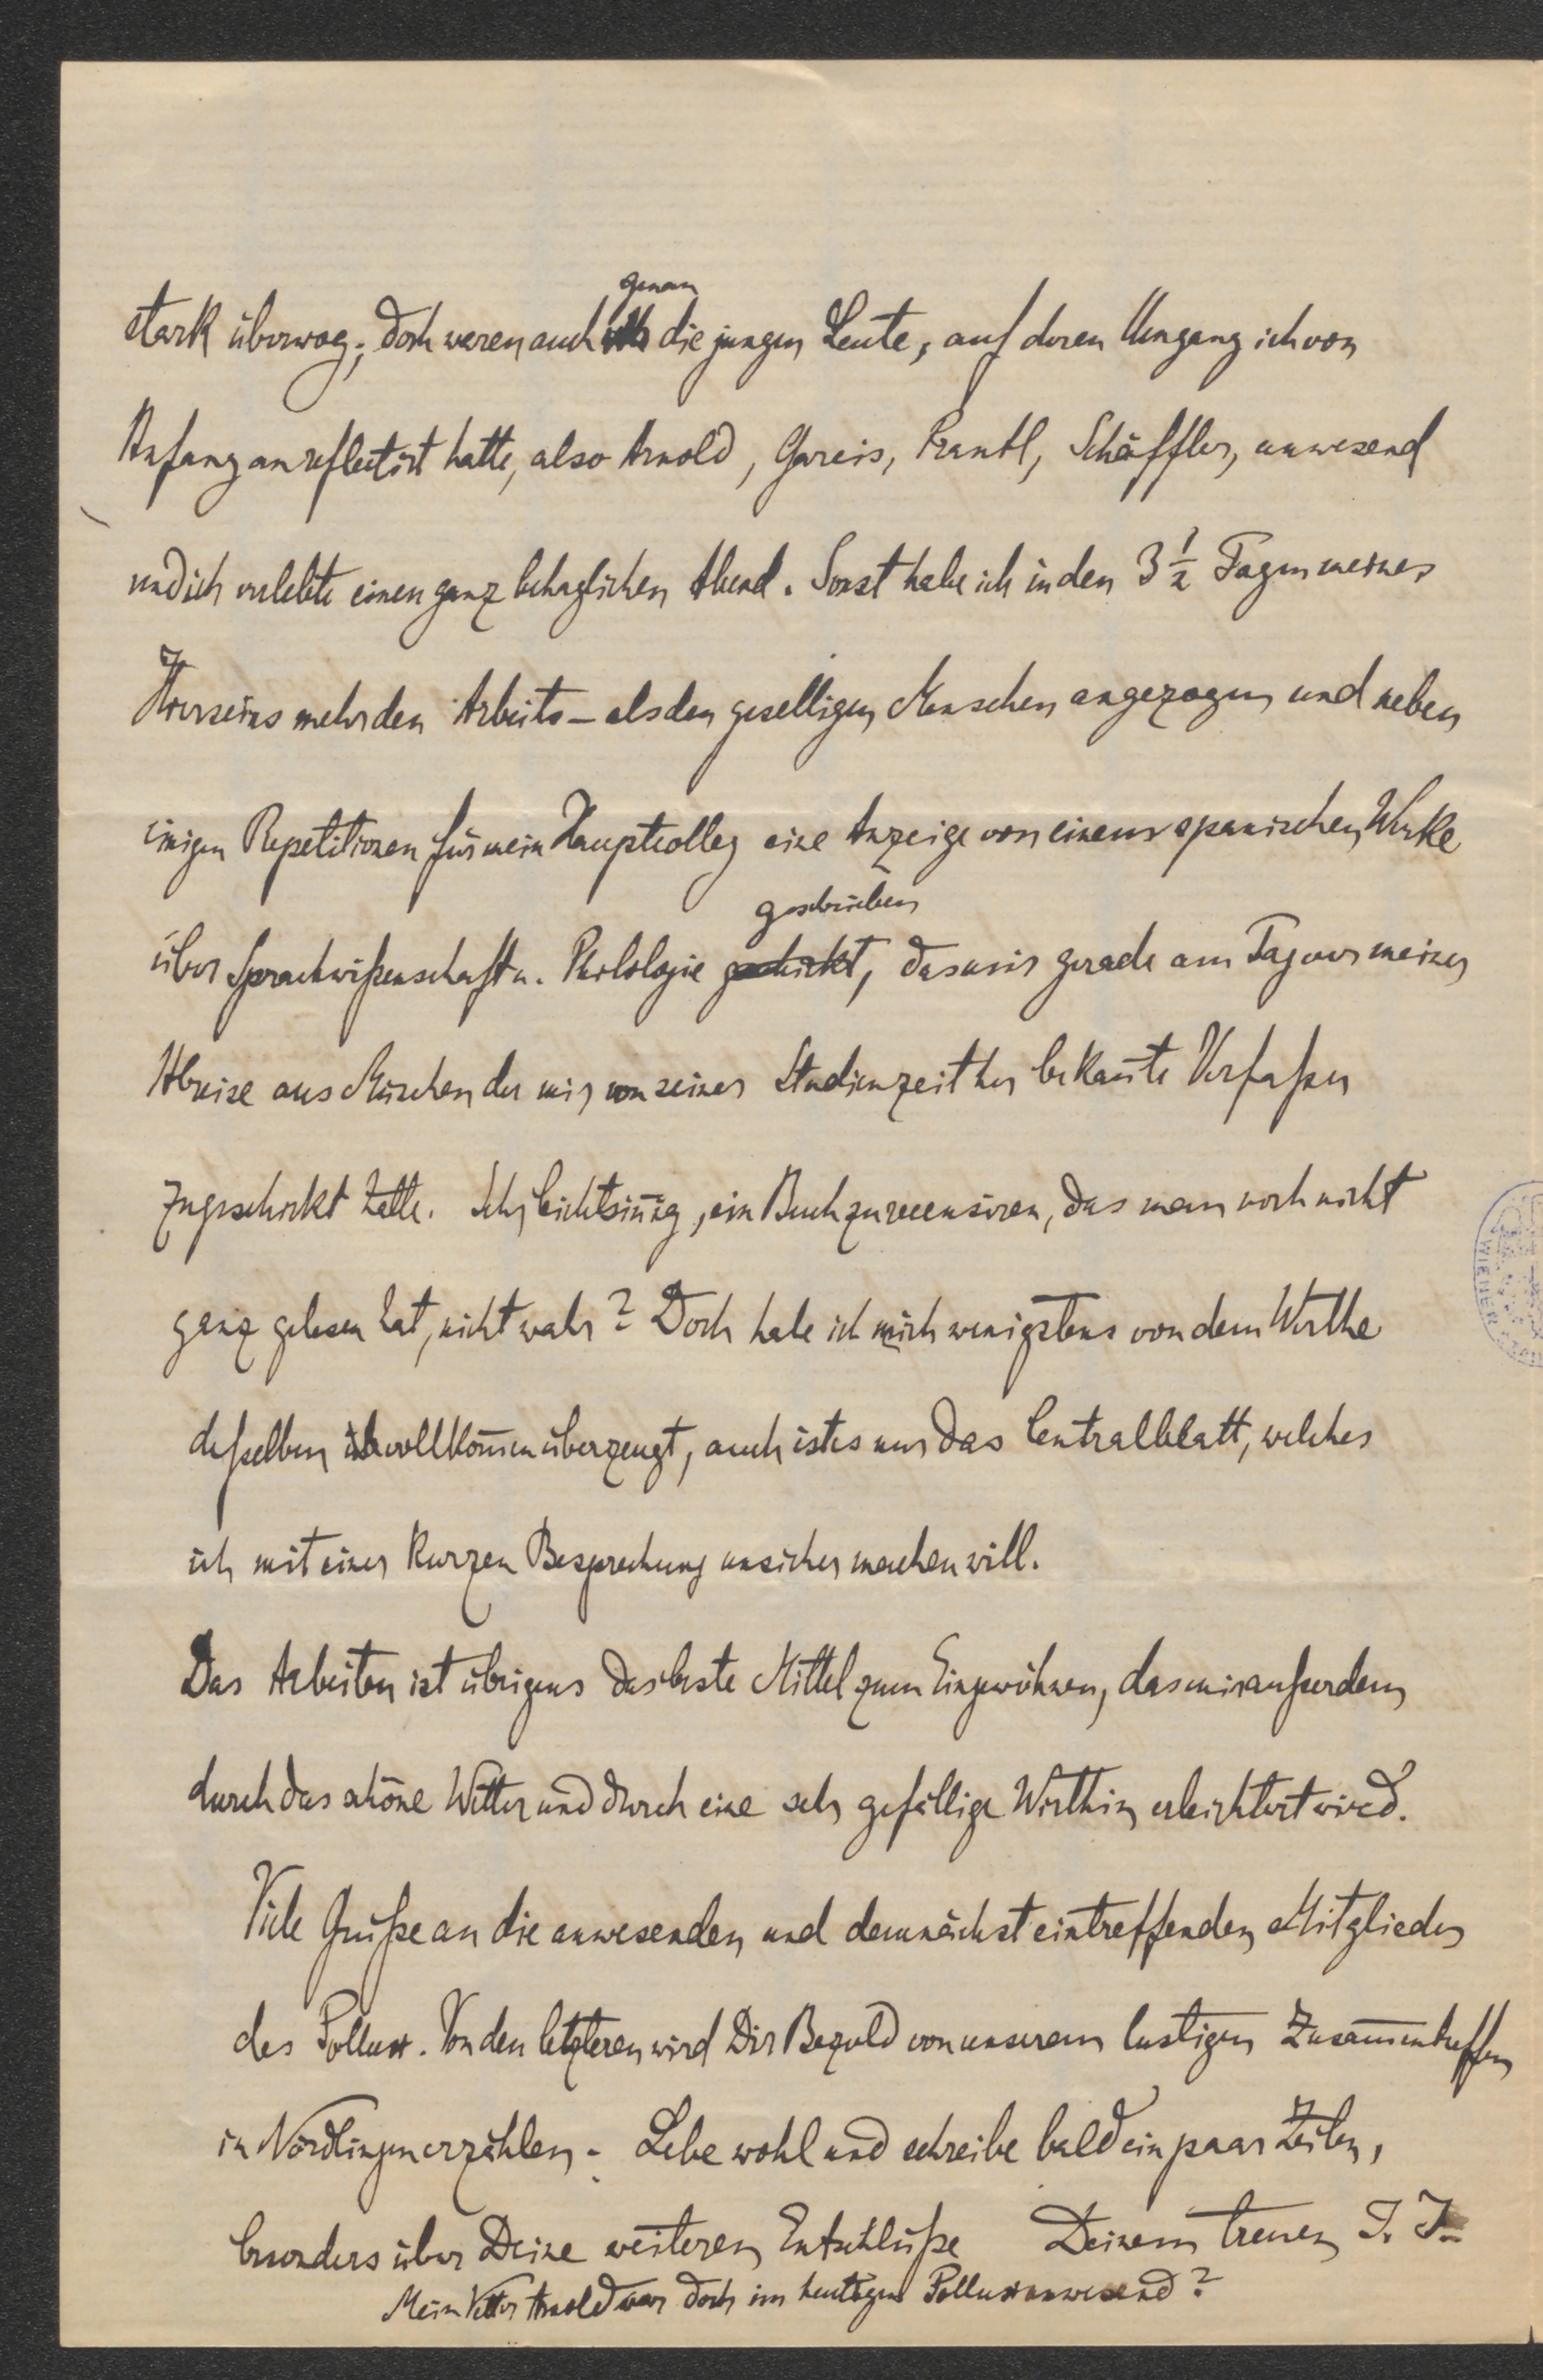 genau
stark überwog; doch waren auch die jungen Leute, auf deren Umgang ich von
Anfang an reflectirt hatte, also Arnold, Gareis, Prantl, Schäffler, anwesend
und ich verlebte einen ganz behaglichen Abend. Sonst habe ich in den 3 ½ Tagen meines
Hierseins mehr den Arbeits- als den geselligen Menschen angezogen und neben
einigen Repetitionen für mein Hauptcolleg eine Anzeige von einem spanischen Werke
geschrieben
über Sprachwißenschaft u. Philologie geschickt, das mir gerade am Tag vor meiner
Abreise aus München der mir von seiner Studienzeit her bekannte Verfaßer
zugeschickt hatte. Sehr leichtsinnig, ein Buch zu recensiren, das man noch nicht
ganz gelesen hat, nicht wahr? Doch habe ich mich wenigstens von dem Werthe
deßelben vollkommen überzeugt, auch ist es nur das Centralblatt, welches
ich mit einer kurzen Besprechung unsicher machen will.
Das Arbeiten ist übrigens das beste Mittel zum Eingewöhnen, das mir außerdem
durch das schöne Wetter und durch eine sehr gefällige Wirthin erleichtert wird.
Viele Grüße an die anwesenden und demnächst eintreffenden Mitglieder
des Pollux. Von den letzteren wird Dir Bezold von unserem lustigen Zusammentreffen
in Nördlingen erzählen. Lebe wohl und schreibe bald ein paar Zeilen,
besonders über Deine weiteren Entschlüße Deinem treuen J. J.
Mein Vetter Arnold war doch im heutigen Pollux anwesend?
WIENER